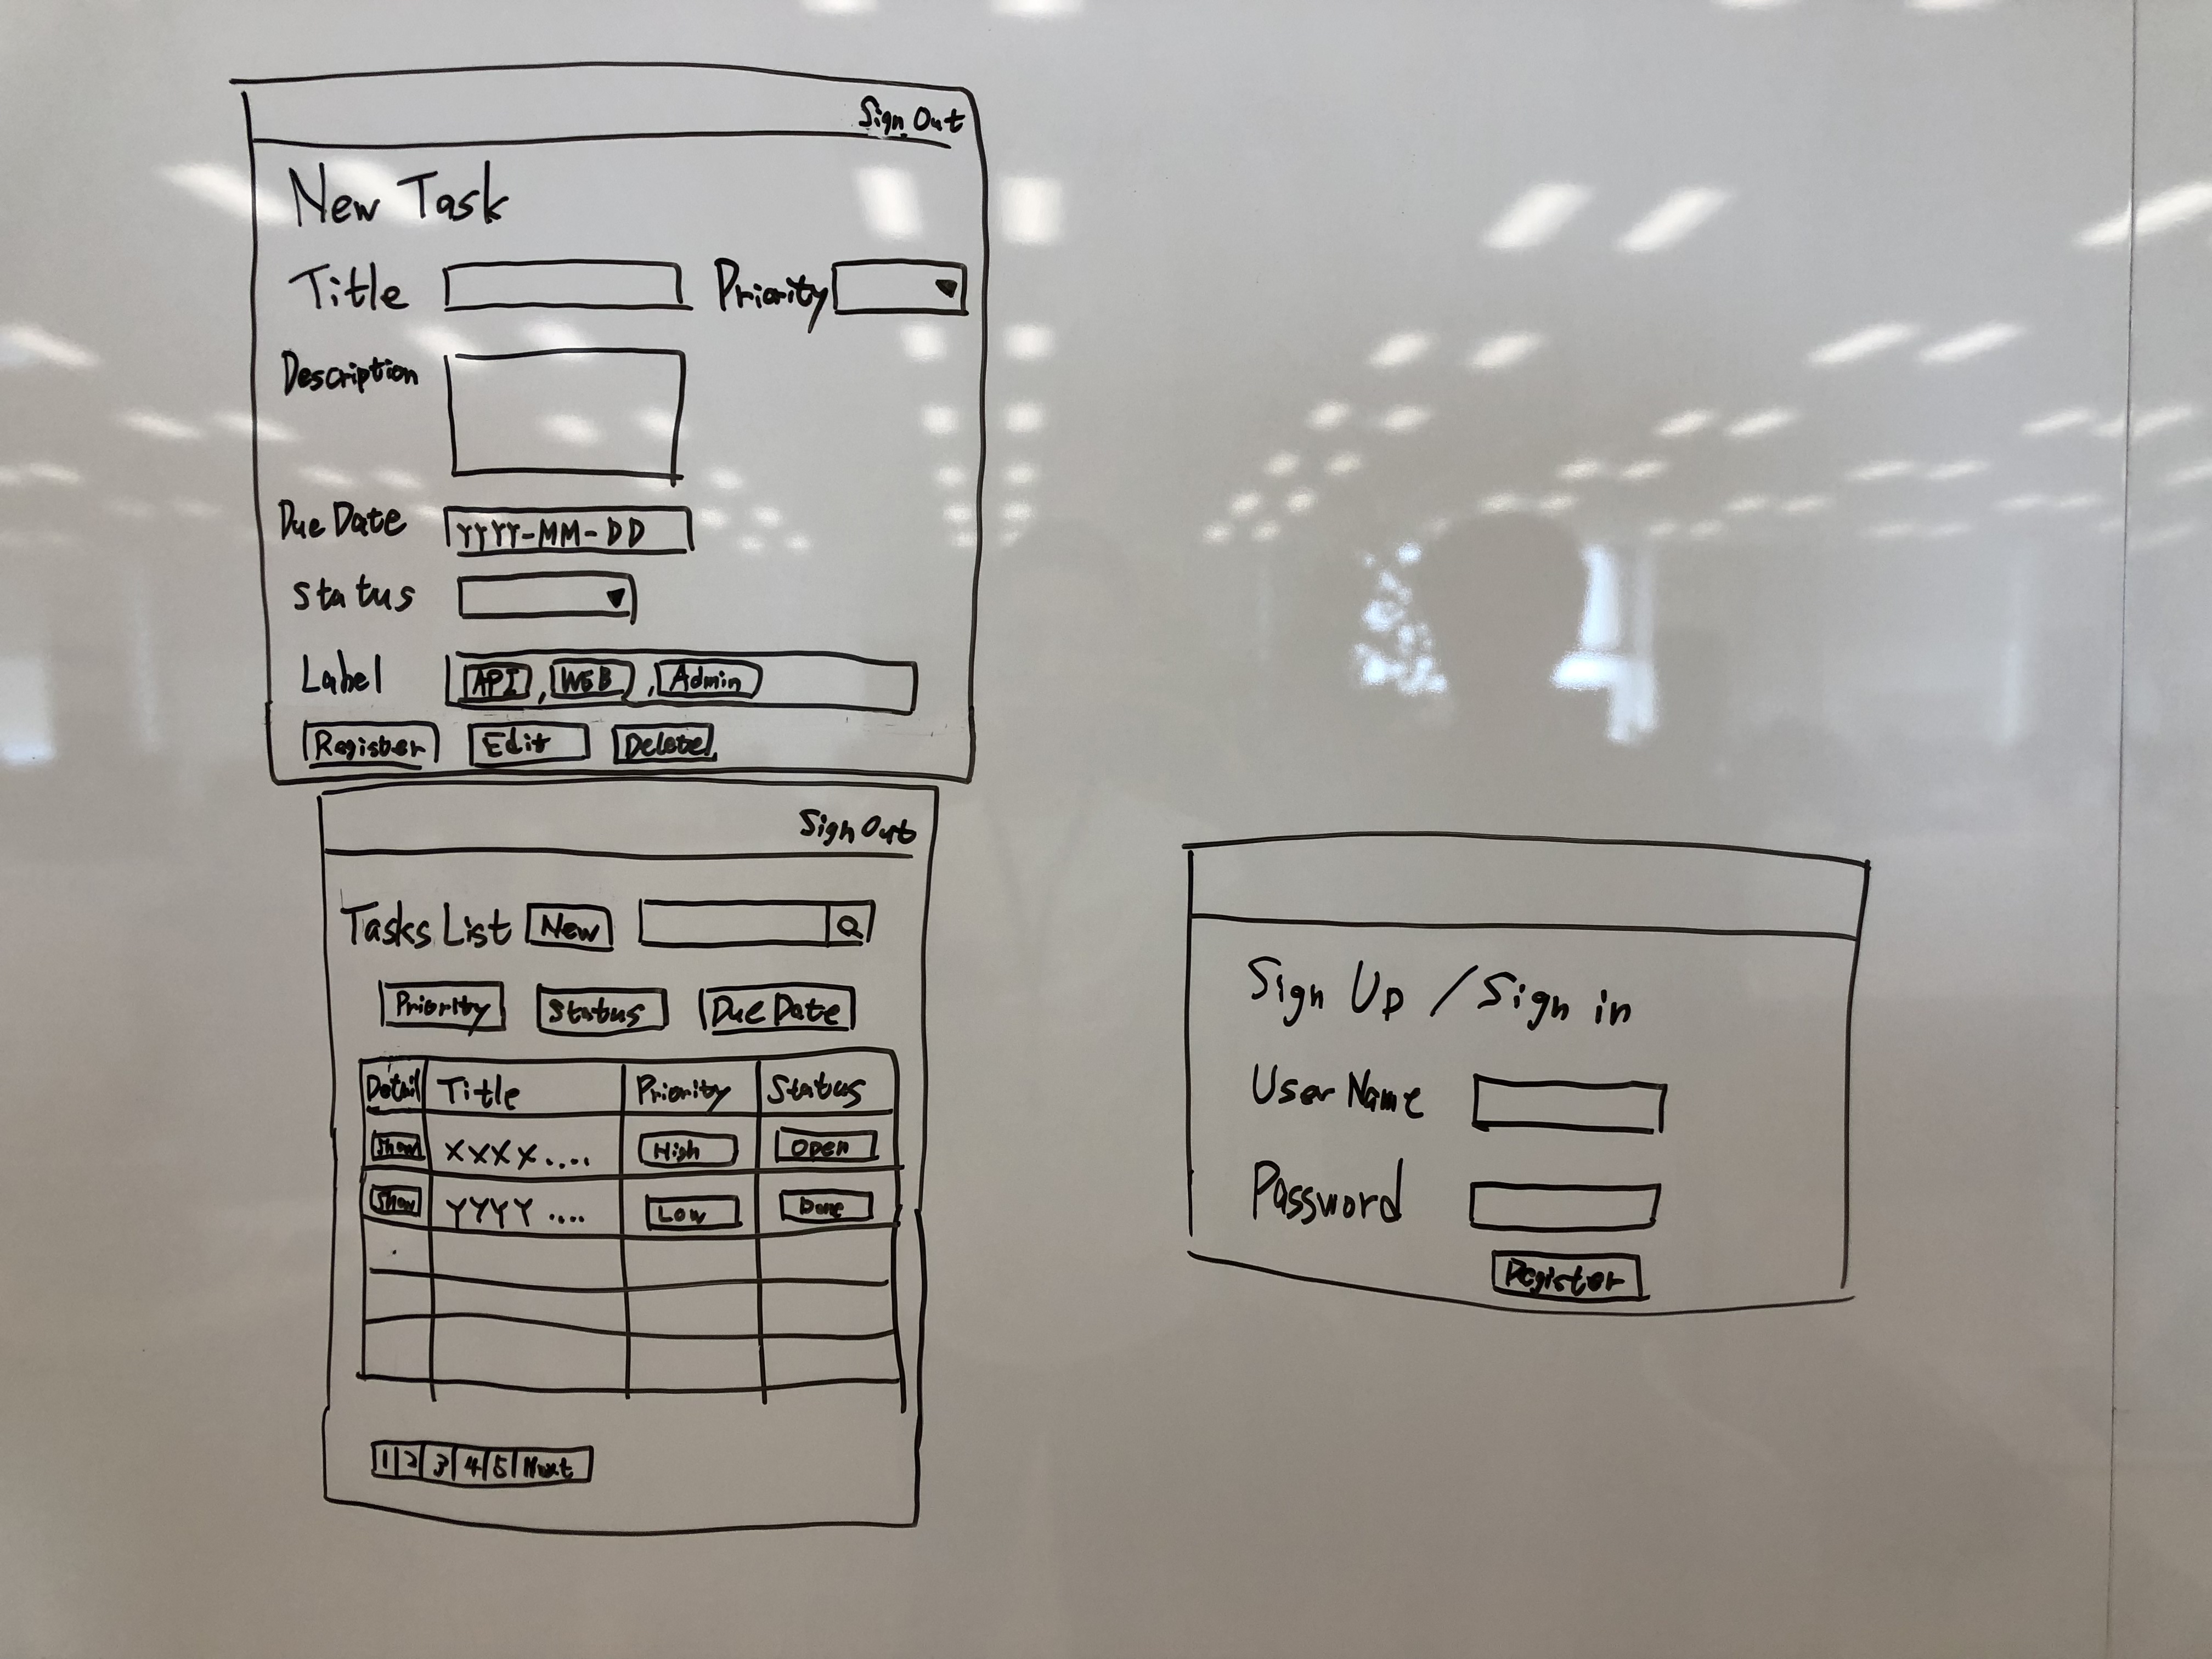 Sign Out
New Task
Title Priority
Description
Due Date YYYY-MM-DD
Status
Label API, WEB, Admin
Register Edit Delete
Sign Out
Tasks List New
Priority Status Due Date
Detail Title Priority Status
Show XXXX.... High Open
Show YYYY.... Low Done
1 2 3 4 5 Next
Sign Up / Sign in
User Name
Password
Register